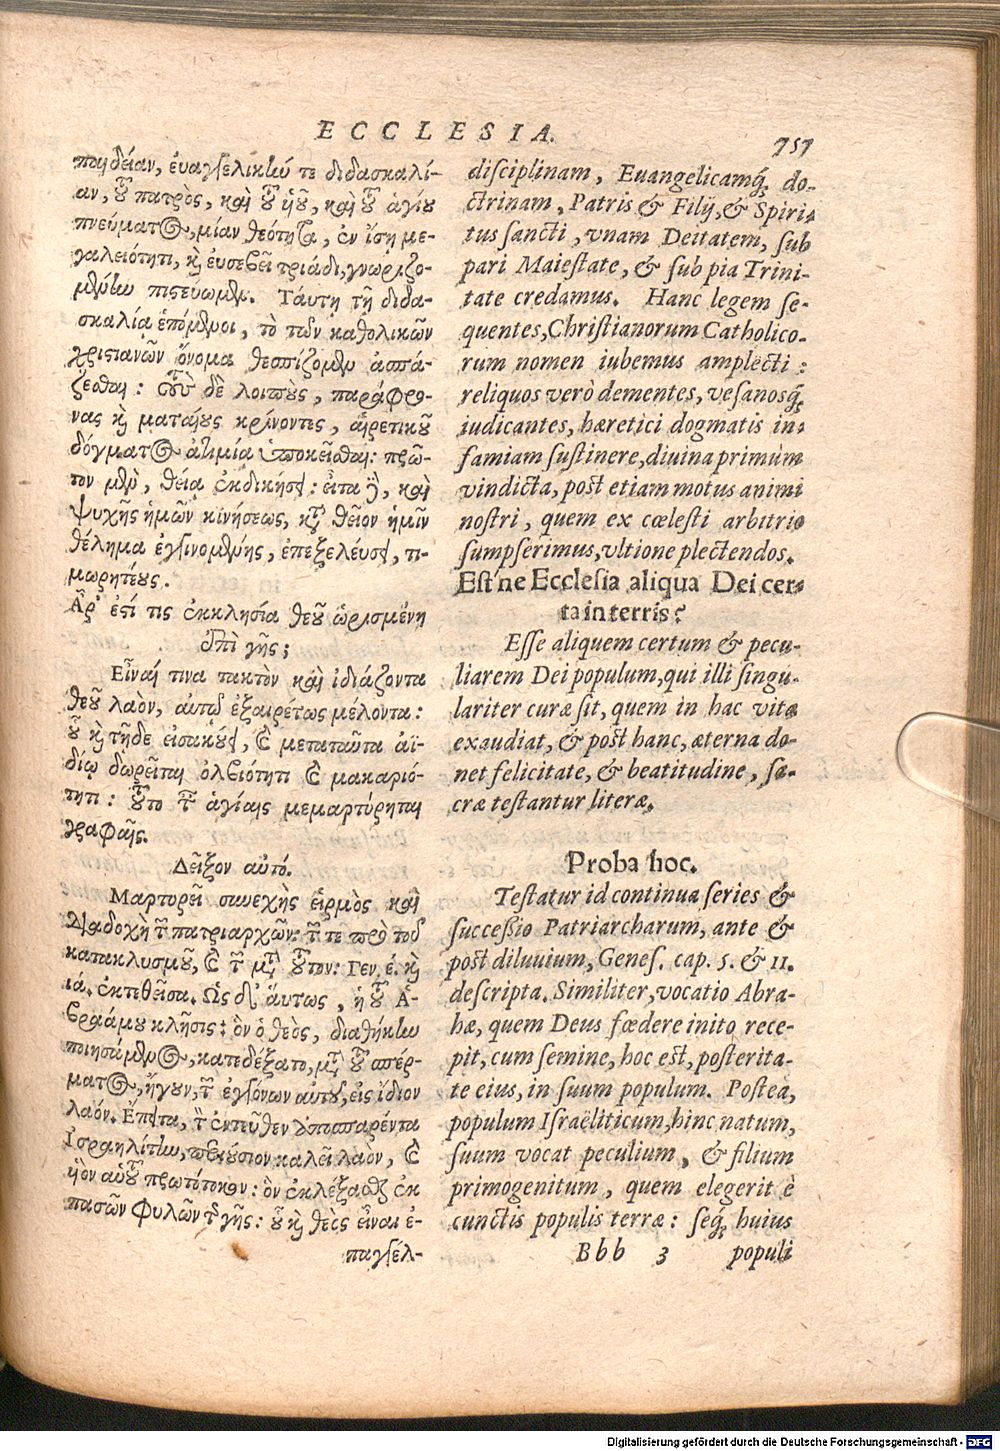 ECCLESIA. 757
παιδείαν, ἐυαγγελικήν τε διδασκαλί-
αν, τοῦ πατρὸς, καὶ τοῦ υἱοῦ, καὶ τοῦ ἁγίου
πνεύματος, μίαν θεότητα, ἐν ἴση με-
γαλειότητι, καὶ ἐυσεβεῖ τριάδι, γνωριζο-
μένην πιστεύωμεν. Τάυτη τῆ διδα-
σκαλία ἑπόμενοι, τὸ τῶν καθολικῶν
χριστιανῶν ὄνομα θεσπίζομεν ἀσπά-
ζεσθαι: τοὺς δὲ λοιποὺς, παράφρο-
νας καὶ ματαίους κρίνοντες, αἱρετικοῦ
δόγματος ἀτιμία ὑποκεῖσθαι: πρῶ-
τον μὲν, θεία ἐκδικήσει: εἶτα δὲ, καὶ
ψυχῆς ἡμῶν κινήσεως, κατὰ θεῖον ἡμῖν
θέλημα ἐγγινομένης, ἐπεξελέυσει, τι-
μωρητέους.
Ἆρ' ἐστί τις ἐκκλησία θεοῦ ὡρισμένη
ἐπὶ γῆς;
Εἶναί τινα τακτὸν καὶ ἰδιάζοντα
θεοῦ λαὸν, αὐτῷ ἐξαιρέτως μέλοντα:
οὗ καὶ τῆδε εἰσακούει, καὶ μεταταῦτα ἀϊ-
δίῳ δωρεῖται ὀλβιότητι καὶ μακαριό-
τητι: τοῦτο ταῖς ἁγίαις μεμαρτύρηται
γραφαῖς.
Δεῖξον αὐτό.
Μαρτυρεῖ συνεχὴς εἱρμὸς καὶ
διαδοχὴ τῶν πατριαρχῶν: τῶν τε πρὸ τοῦ
κατακλυσμοῦ, καὶ τῶν μετὰ τοῦτον: Γεν. έ. καὶ
ιά. ἐκτεθεῖσα. Ὡς δ' ἄυτως, ἡ τοῦ Ἀ-
βραάμου κλῆσις: ὃν ὁ θεὸς, διαθήκην
ποιησάμενος, κατεδέξατο, μετὰ τοῦ σπέρ-
ματος, ἤγουν, τῶν ἐγγόνων αὐτοῦ, εἰς ἴδιον
λαόν. Ἔπειτα, τὸν ἐντεῦθεν ἀποσπαρέντα
Ἰσραηλίτην, περιούσιον καλεῖ λαὸν, καὶ
υἱὸν αὑτοῦ πρωτότοκον: ὃν ἐκλέξασθαι ἐκ
πασῶν φυλῶν τῆς γῆς: οὗ καὶ θεὸς εἶναι ἐ-
παγγέλ-
disciplinam, Euangelicamq́; do-
ctrinam, Patris & Filij, & Spiri-
tus sancti, vnam Deitatem, sub
pari Maiestate, & sub pia Trini-
tate credamus. Hanc legem se-
quentes, Christianorum Catholico-
rum nomen iubemus amplecti:
reliquos verò dementes, vesanosq́;
iudicantes, hæretici dogmatis in-
famiam sustinere, diuina primùm
vindicta, post etiam motus animi
nostri, quem ex cœlesti arbitrio
sumpserimus, vltione plectendos.
Est'ne Ecclesia aliqua Dei cer-
ta in terris?
Esse aliquem certum & pecu-
liarem Dei populum, qui illi singu-
lariter curæ sit, quem in hac vita
exaudiat, & post hanc, æterna do-
net felicitate, & beatitudine, sa-
cræ testantur literæ.
Proba hoc.
Testatur id continua series &
successio Patriarcharum, ante &
post diluuium, Genes. cap. 5. & 11.
descripta. Similiter, vocatio Abra-
hæ, quem Deus fœdere inito rece-
pit, cum semine, hoc est, posterita-
te eius, in suum populum. Postea,
populum Israëliticum, hinc natum,
suum vocat peculium, & filium
primogenitum, quem elegerit è
cunctis populis terræ: seq́; huius
Bbb 3 populi
Digitalisierung gefördert durch die Deutsche Forschungsgemeinschaft - DFG